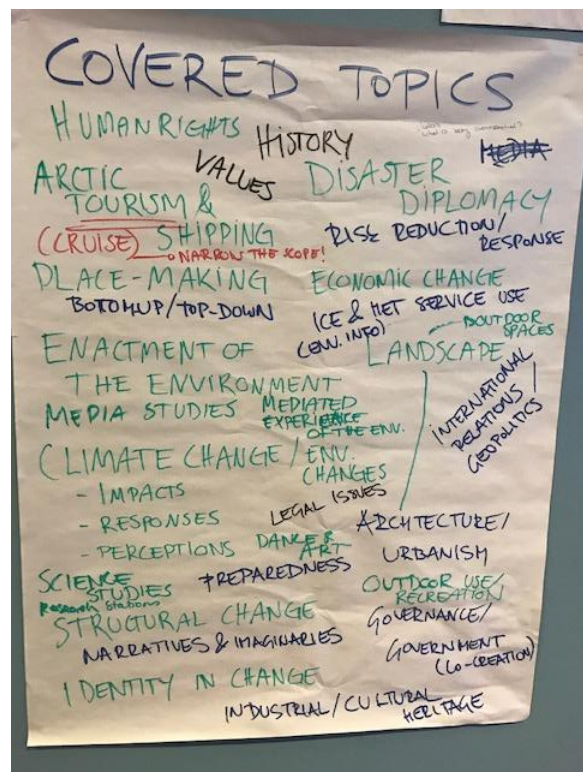 COVERED TOPICS
HUMAN RIGHTS
HISTORY
what is being
MEDIA
VALUES
ARCTIC
TOURISM &
(CRUISE) SHIPPING
NARROW THE SCOPE!
DISASTER
DIPLOMACY
RISK REDUCTION/
RESPONSE
PLACE-MAKING
BOTOMUP/TOP-DOWN
ECONOMIC CHANGE
ICE & MET SERVICE USE
(ENV. INFO)
OUTDOOR
SPACES
LANDSCAPE
ENACTMENT OF
THE ENVIRONMENT
INTERNATIONAL
RELATIONS/
GEOPOLITICS
MEDIA STUDIES
MEDIATED
EXPERIENCE
OF THE ENV.
CLIMATE CHANGE/ENV.
CHANGES
- IMPACTS
- RESPONSES
- PERCEPTIONS
LEGAL ISSUES
DANCE &
ART
ARCHITECTURE/
URBANISM
PREPAREDNESS
SCIENCE
STUDIES
Research stations
OUTDOOR USE/
RECREATION
STRUCTURAL CHANGE
NARRATIVES & IMAGINARIES
GOVERNANCE/
GOVERNMENT
(CO-CREATION)
IDENTITY IN CHANGE
INDUSTRIAL/CULTURAL
HERITAGE